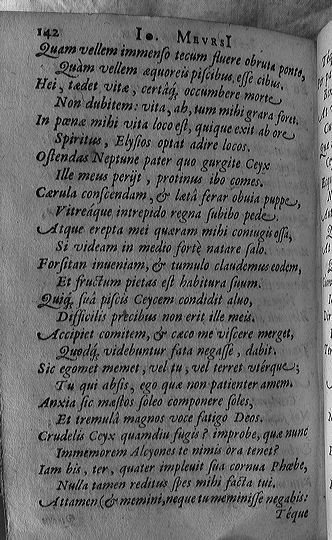 142 Io. MEVRSI
Quam vellem immenso tecum fluere obruta ponto,
Quàm vellem æquoreis piscibus esse cibus.
Hei, tædet vitæ, certáq; occumbere morte
Non dubitem: vita, ah, tum mihi grara foret.
In pœnæ mihi vita loco est, quique exit ab ore
Spiritus, Elysios optat adire locos.
Ostendas Neptune pater quo gurgite Ceyx
Ille meus perijt, protinus ibo comes.
Cærula conscendam, & lætâ ferar obuia puppe,
Vitreáque intrepido regna subibo pede.
Atque erepta mei quæram mihi coniugis ossa,
Si videam in medio fortè natare salo.
Forsitan inueniam, & tumulo claudemur eodem,
Et fructum pietas est habitura suum.
Quiq; suâ piscis Ceycem condidit aluo,
Difficilis precibus non erit ille meis.
Accipiet comitem, & cæco me viscere merget,
Quodq; videbuntur fata negasse, dabit.
Sic egomet memet, vel tu, vel terret vterque;
Tu qui absis, ego quæ non patienter amem.
Anxia sic mæstos soleo componere soles,
Et tremulâ magnos voce fatigo Deos.
Crudelis Ceyx quamdiu fugis? improbe, quæ nunc
Immemorem Alcyones te nimis ora tenet?
Iam bis, ter, quater impleuit sua cornua Phœbe,
Nulla tamen reditus spes mihi facta tui.
Attamen (& memini, neque tu meminisse negabis:
Téque